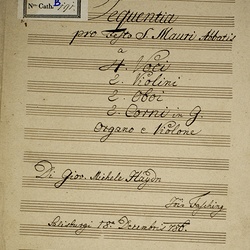 Nro Cath.
Sequentia
pro Festo S. Mauri Abbatis
a
4. Voci
2. Violini
2. Oboi
2. Corni in G.
Organo e Violone
Di Giov. Michele Haydn
Salisburgi 18. Decembris